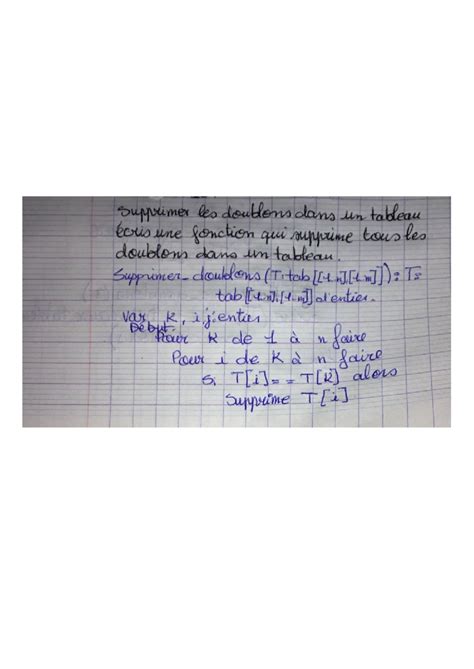 Supprimer les doublons dans un tableau
écris une fonction qui supprime tous les
doublons dans un tableau.
Supprimer_doublons (T: tab[[1..n],[1..m]]): T:
tab[[1..n],[1..m]] d'entier.
var k, i, j: entier
Début
Pour k de 1 à n faire
Pour i de k à n faire
Si T[i] == T[k] alors
Supprime T[i]